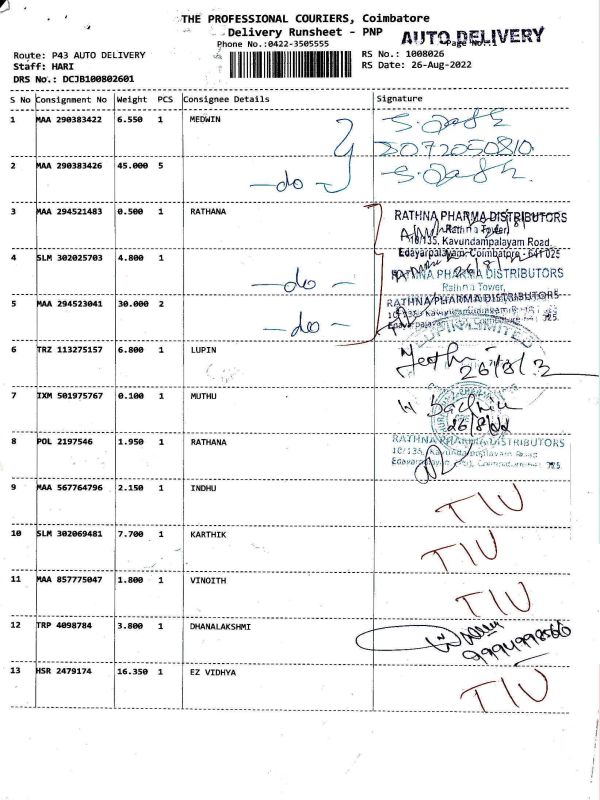 THE PROFESSIONAL COURIERS, Coimbatore
Delivery Runsheet - PNP
Phone No.:0422-3505555
AUTO DELIVERY
Page No.:1
Route: P43 AUTO DELIVERY
Staff: HARI
DRS No.: DCJB100802601
RS No.: 1008026
RS Date: 26-Aug-2022
S No Consignment No Weight PCS Consignee Details Signature
1 MAA 290383422 6.550 1 MEDWIN
8072050810
2 MAA 290383426 45.000 5 -do-
3 MAA 294521483 0.500 1 RATHANA
RATHNA PHARMA DISTRIBUTORS
Rathna Tower,
10/135, Kavundampalayam Road,
Edayarpalayam, Coimbatore - 641 025
4 SLM 302025703 4.800 1 -do-
26/8/22
RATHNA PHARMA DISTRIBUTORS
Rathna Tower,
5 MAA 294523041 30.000 2 -do-
RATHNA PHARMA DISTRIBUTORS
6 TRZ 113275157 6.800 1 LUPIN
LUPIN LIMITED
26/8/2
7 IXM 501975767 0.100 1 MUTHU
26/8/22
8 POL 2197546 1.950 1 RATHANA
RATHNA PHARMA DISTRIBUTORS
9 MAA 567764796 2.150 1 INDHU TIU
10 SLM 302069481 7.700 1 KARTHIK TIU
11 MAA 857775047 1.800 1 VINOITH TIU
12 TRP 4098784 3.800 1 DHANALAKSHMI
13 HSR 2479174 16.350 1 EZ VIDHYA TIU